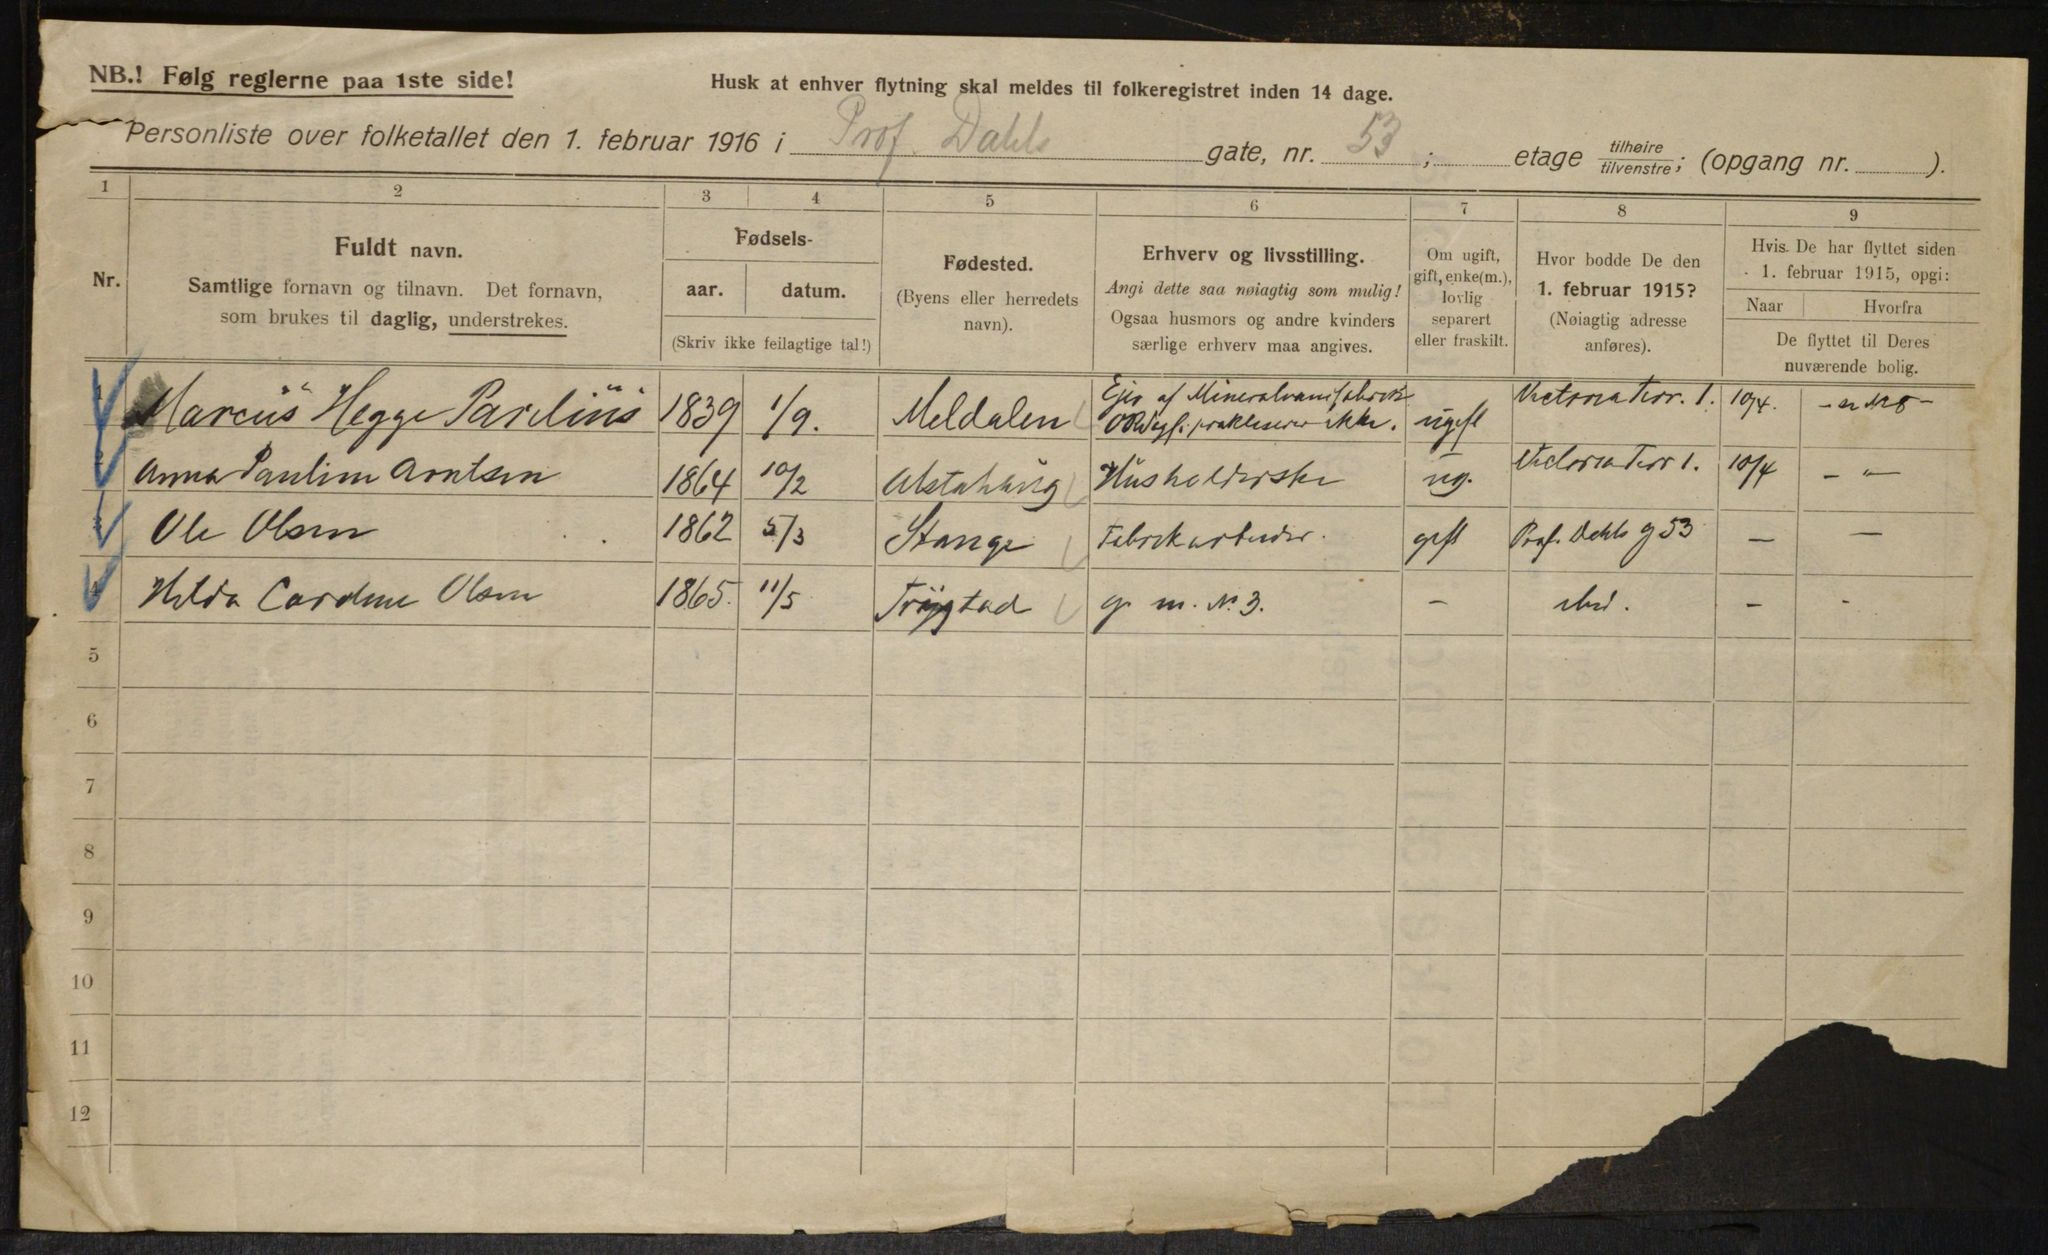 NB.! Følg reglerne paa 1ste side!
Husk at enhver flytning skal meldes til folkeregistret inden 14 dage.
Personliste over folketallet den 1. februar 1916 i Prof. Dahls gate, nr. 53; etage tilhøire / tilvenstre; (opgang nr. ).
1 2 3 4 5 6 7 8 9
Nr.
Fuldt navn.
Samtlige fornavn og tilnavn. Det fornavn,
som brukes til daglig, understrekes.
Fødsels-
aar. datum.
(Skriv ikke feilagtige tal!)
Fødested.
(Byens eller herredets
navn).
Erhverv og livsstilling.
Angi dette saa nøiagtig som mulig!
Ogsaa husmors og andre kvinders
særlige erhverv maa angives.
Om ugift,
gift, enke(m.),
lovlig
separert
eller fraskilt.
Hvor bodde De den
1. februar 1915?
(Nøiagtig adresse
anføres).
Hvis. De har flyttet siden
1. februar 1915, opgi:
Naar Hvorfra
De flyttet til Deres
nuværende bolig.
Marcus Hegge Parelius 1839 1/9. Meldalen Ejer af Mineralvandfabrik ikke. ugift Victoria Terr. 1. 10/4.
Anna Pauline Arntsen 1864 10/2 Alstahaug Husholderske ug. Victoria Terr 1. 10/4 — " —
Ole Olsen 1862 5/3 Stange Fabrikarbeider. gift Prof. Dahls g 53 — —
Hilda Cardine Olsen 1865. 11/5 Trøgstad g. m. N. 3. — ibid. — -
5
6
7
8
9
10
11
12